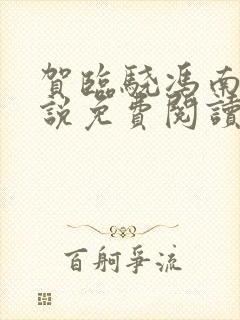 賀臨駿馮南
說免費閱讀
百舸爭流